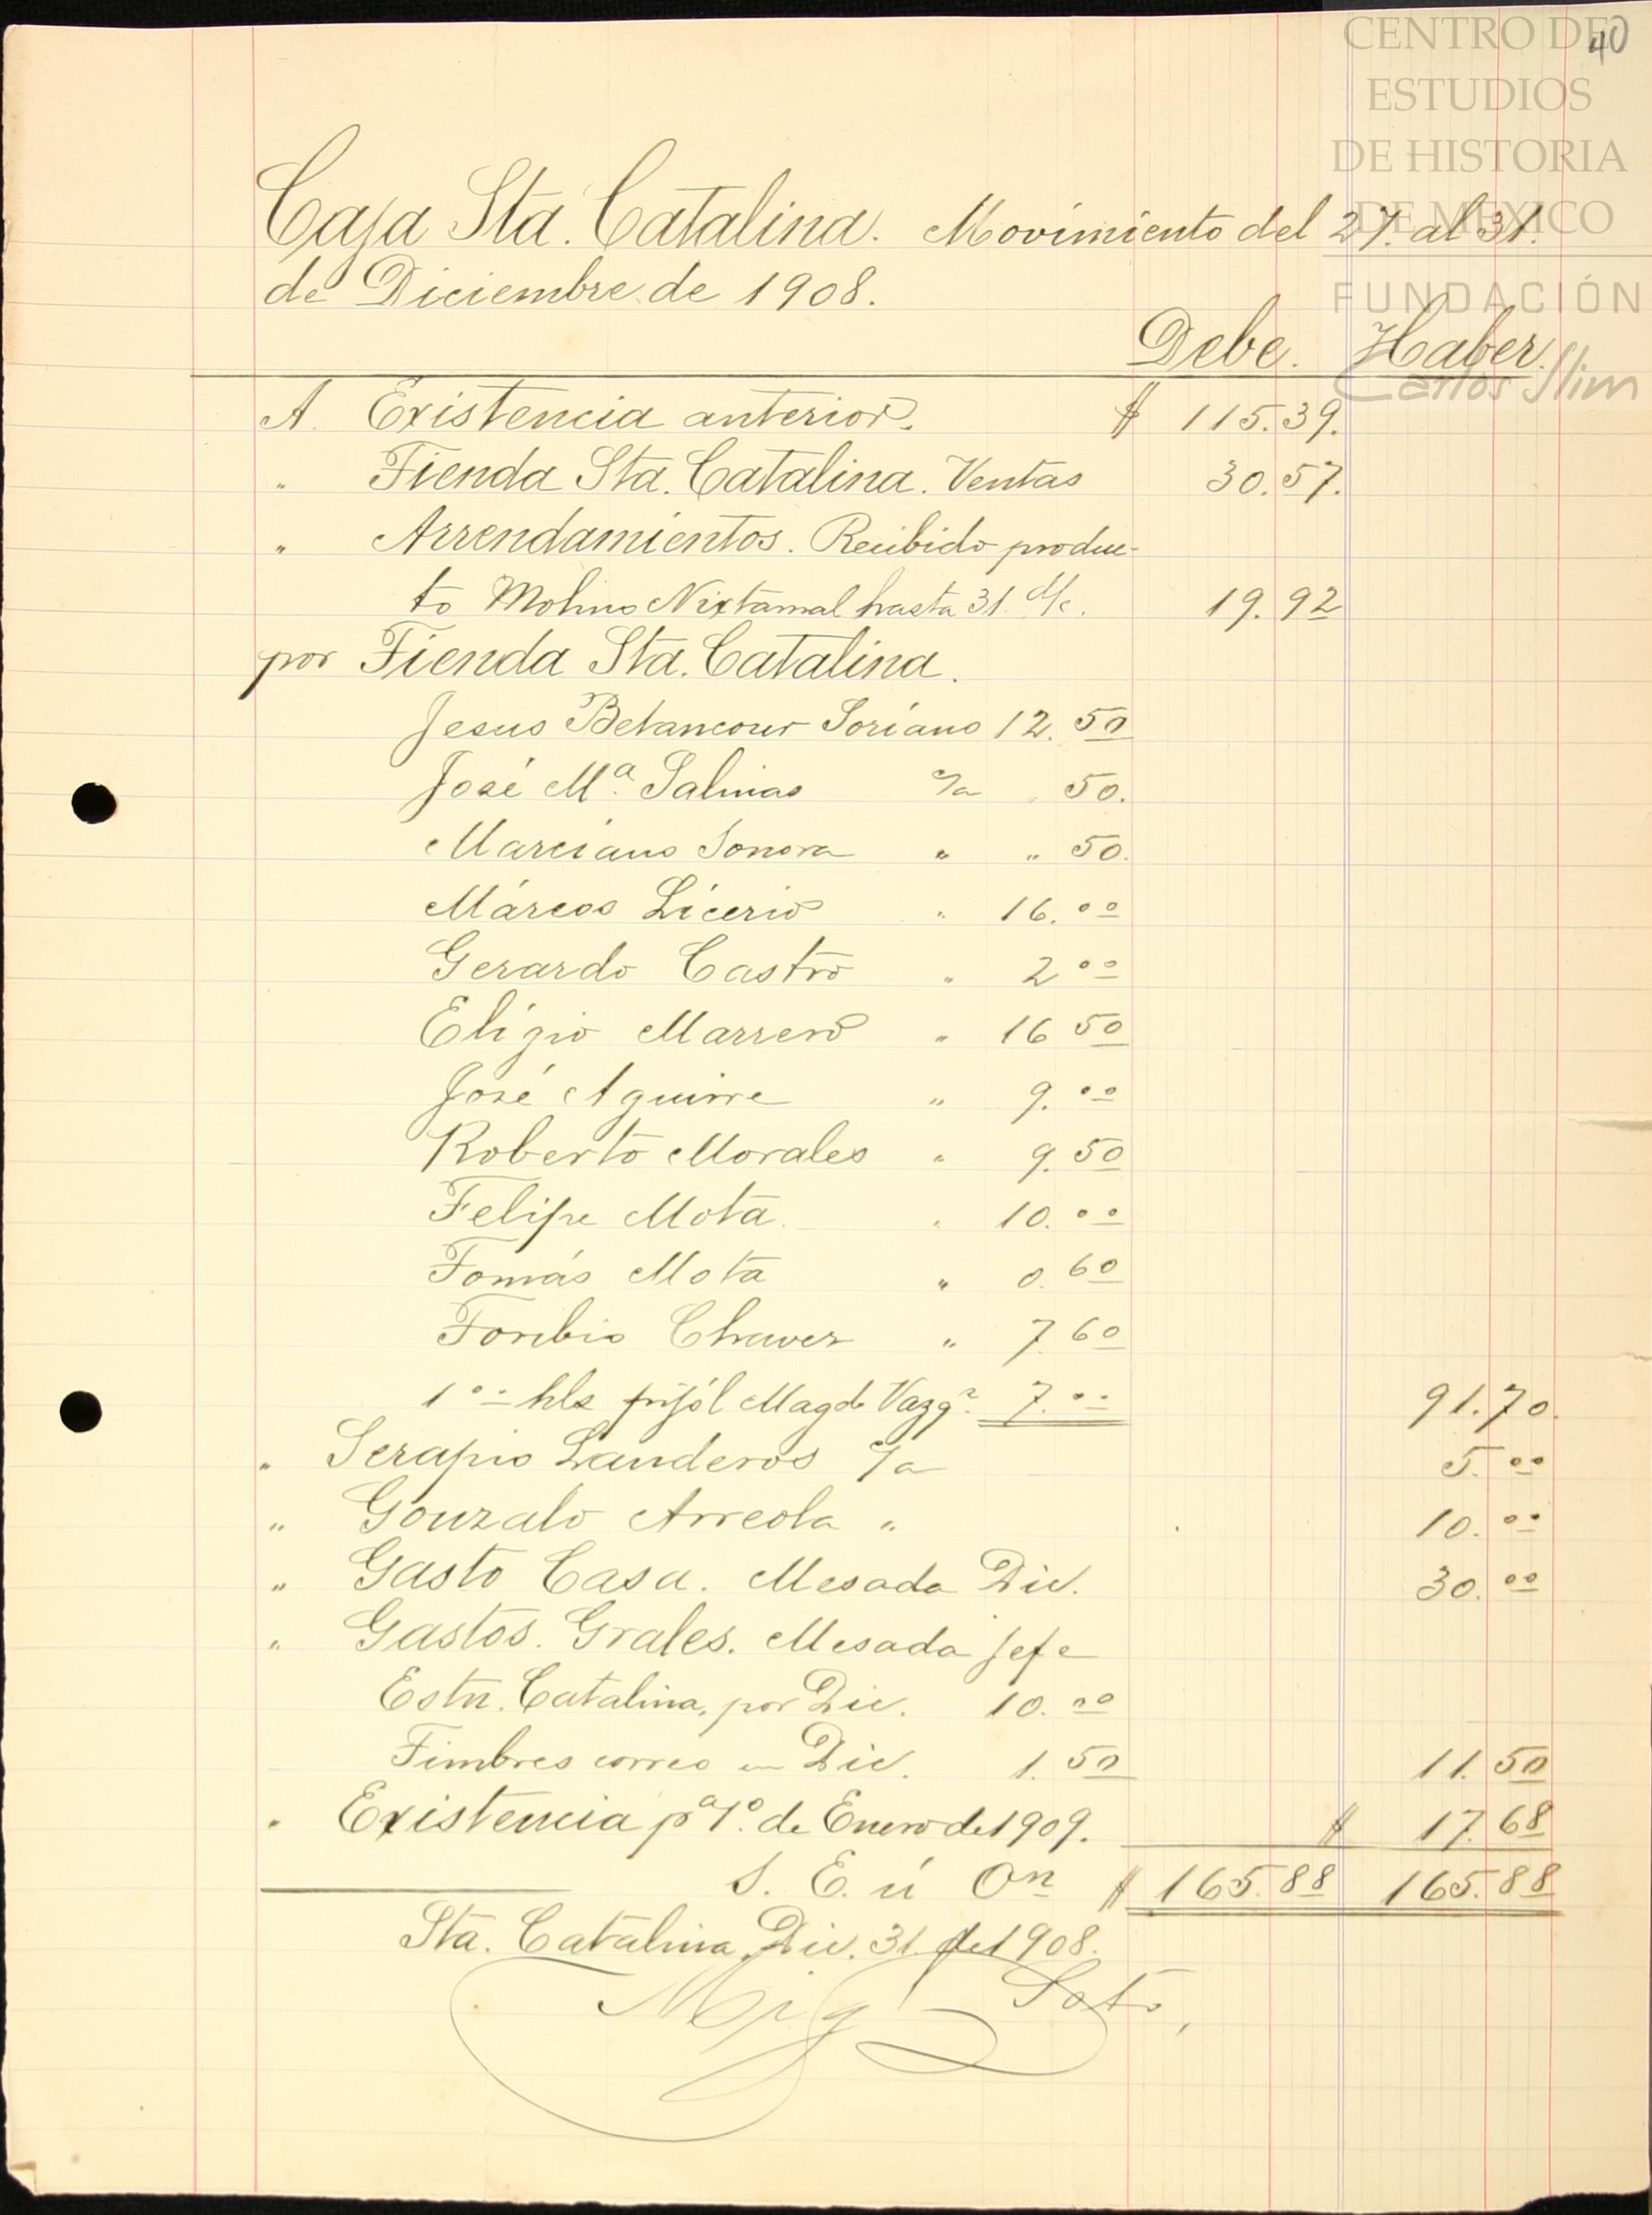 40
CENTRO DE
ESTUDIOS
DE HISTORIA
DE MÉXICO
FUNDACIÓN
Carlos Slim
Caja Sta. Catalina. Movimiento del 27. al 31.
de Diciembre de 1908.
Debe. Haber.
A Existencia anterior. $ 115.39.
" Tienda Sta. Catalina. Ventas 30.57.
" Arrendamientos. Recibido produc-
to Molino Nixtamal hasta 31. 19.92
por Tienda Sta. Catalina.
Jesus Betancour Soriano 12.50
José Ma. Salinas c/a " 50.
Marciano Sonora " " 50.
Márcos Licerio " 16.00
Gerardo Castro " 2 00
Eligio Marrero " 16 50
José Aguirre " 9.00
Roberto Morales " 9.50
Felipe Mota " 10.00
Tomás Mota " 0.60
Toribio Chavez " 7.60
1 00 hls frijól Magdo Vazqz. 7.00 91.70.
" Serapio Landeros c/a 5.00
" Gonzalo Arreola " 10.00
" Gasto Casa. Mesada Dic. 30.00
" Gastos. Grales. Mesada Jefe
Estn. Catalina, por Dic. 10.00
Timbres correo en Dic. 1.50 11.50
" Existencia pa. 1o. de Enero de 1909. $ 17.68
S. E. ú On $ 165.88 165.88
Sta. Catalina, Dic. 31 de 1908.
Migl Soto,